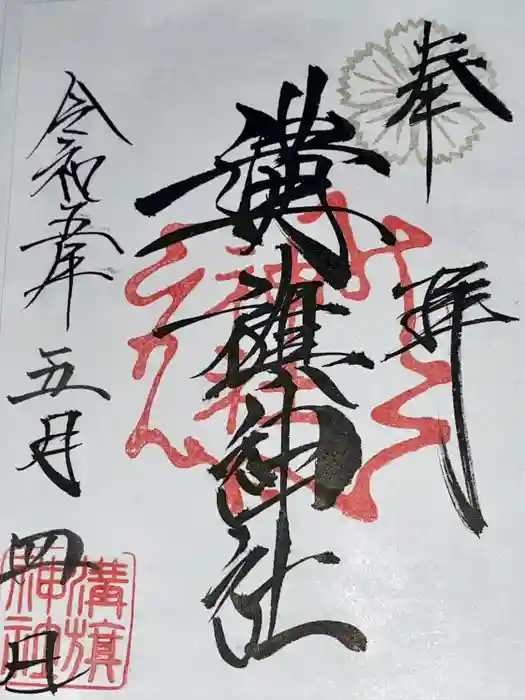 奉拝
溝旗神社
令和五年
五月
四日
溝旗
神社